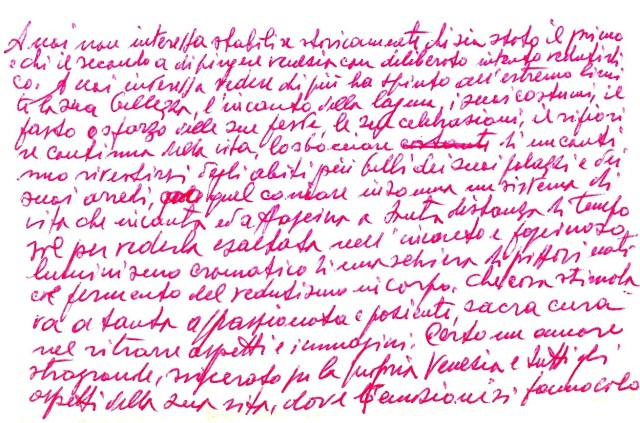 A noi non interessa stabilire storicamente chi sia stato il primo
e chi il secondo a dipingere Venezia con deliberato intento vedutisti-
co. A noi interessa vedere chi più ha spinto all'estremo limi
te la sua bellezza, l'incanto della laguna, i suoi costumi, il
fasto e sforzo delle sue feste, le sue celebrazioni, il rifiori
re continuo della vita, lo di incanti
mo rivestirsi degli abiti più belli dei suoi palazzi e dei
suoi arredi, quel coniare insomma un sistema di
vita che incanta ed affascina a tanta distanza di tempo
sol per vederla esaltata nell'incanto e
luminismo cromatico di una schiera di pittori nati
col fermento del vedutismo in corpo. Che cosa stimola
va a tanta appassionata e paziente, sacra cura
nel ritrarre aspetti e immagini. Certo un amore
stragrande, per la propria Venezia e tutti gli
aspetti della sua vita, dove si fanno colo